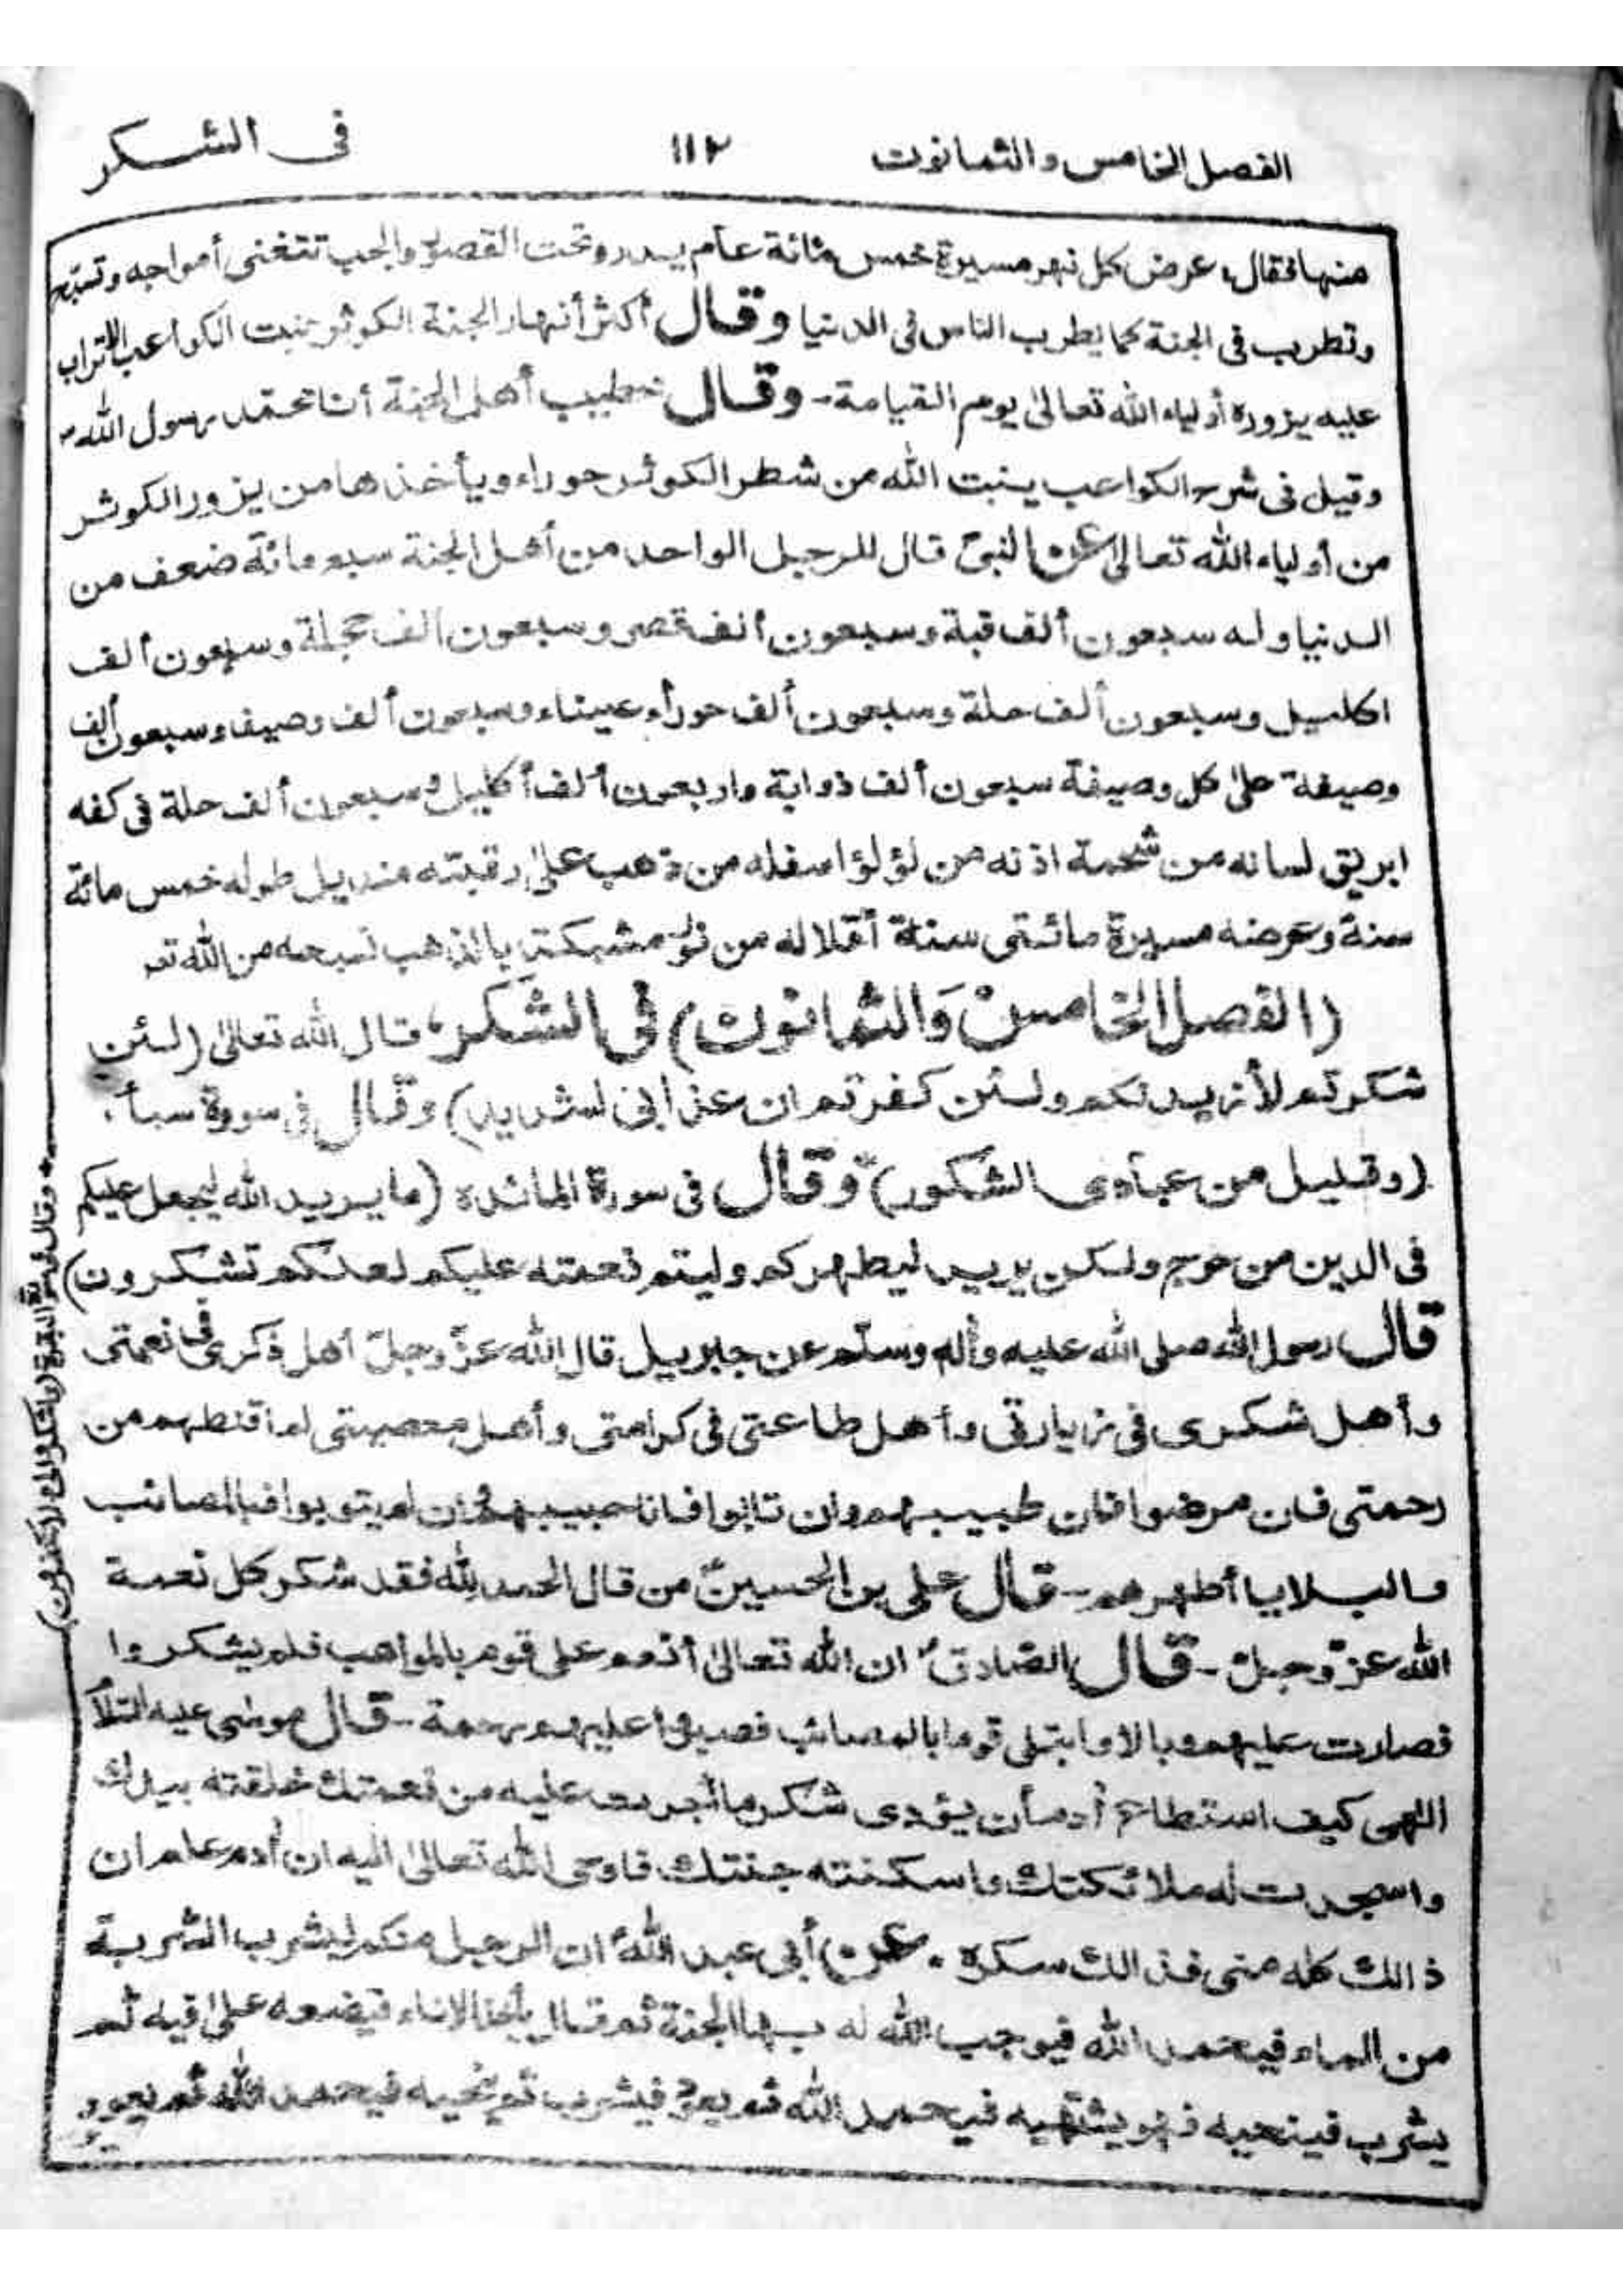 الفصل الخامس والثمانون ١١٢ فى الشكر
منها فقال، عرض كل نهر مسيرة خمس مائة عام يدور تحت القصور والحجب تتغنى أمواجه وتسبّح
وتطرب فى الجنة كما يطرب الناس فى الدنيا وقال أكثر أنهار الجنة الكوثر تنبت الكواعب الاتراب
عليه يزوره أولياء الله تعالىٰ يوم القيامة - وقال خطيب أهل الجنة أنا محمّد رسول الله
وقيل فى شرح الكواعب ينبت الله من شطر الكوثر حوراء ويأخذها من يزور الكوثر
من أولياء الله تعالىٰ عن النبىّ قال للرجل الواحد من أهل الجنة سبع مائة ضعف من
الدنيا وله سبعون ألف قبة وسبعون ألف قصر وسبعون ألف حجلة وسبعون ألف
اكليل وسبعون ألف حلة وسبعون ألف حوراء عيناء وسبعون ألف وصيف وسبعون ألف
وصيفة على كل وصيفة سبعون ألف ذوابة واربعون ألف أكليل وسبعون ألف حلة فى كفه
ابريق لسانه من شحمة اذنه من لؤلؤ اسفله من ذهب علىٰ رقبته منديل طوله خمس مائة
سنة وعرضه مسيرة مائتى سنة أقلاله من نور مشبكة بالذهب نسجه من الله تع
(الفصل الخامس وَالثمانون) فى الشكر، قال الله تعالىٰ (لئن
شكرتم لأزيدنكم ولئن كفرتم ان عذابى لشديد) وقال فى سورة سبأ،
(وقليل من عبادى الشكور) وقال فى سورة المائده (ما يريد الله ليجعل عليكم
فى الدين من حرج ولكن يريد ليطهركم وليتم نعمته عليكم لعلكم تشكرون)
قال رسول الله صلى الله عليه وأله وسلّم عن جبريل قال الله عزّ وجلّ أهل ذكرى فى نعمتى
وأهل شكرى فى زيارتى وأهل طاعتى فى كرامتى وأهل معصيتى لم اقنطهم من
رحمتى فان مرضوا فان طبيبهم وان تابوا فانا حبيبهم وان لم يتوبوا فبالمصائب
والبلايا أطهرهم - قال على بن الحسينؑ من قال الحمد لله فقد شكر كل نعمة
الله عزّ وجلّ - قال الصّادقؑ ان الله تعالىٰ أنعم على قوم بالمواهب فلم يشكروا
فصارت عليهم وبالا وابتلى قوما بالمصائب فصبروا عليهم رحمة - قال موسى عليه السّلام
الهى كيف استطاع أدم أن يؤدى شكر ما أجريت عليه من نعمتك خلقته بيدك
واسجدت له ملائكتك واسكنته جنتك فاوحى الله تعالىٰ اليه ان أدم علم ان
ذالك كله منى فذالك سكره . عن أبى عبد اللهؑ ان الرجل منكم ليشرب الشربة
من الماء فيحمد الله فيوجب الله له بها الجنة ثم قال يأخذ الاناء فيضعه علىٰ فيه ثم
يشرب فينحيه فهو يشتهيه فيحمد الله ثم يعود فيشرب ثم ينحيه فيحمد الله ثم يعود
* وقال فى سورة البقرة (واشكروا لى ولا تكفرون)